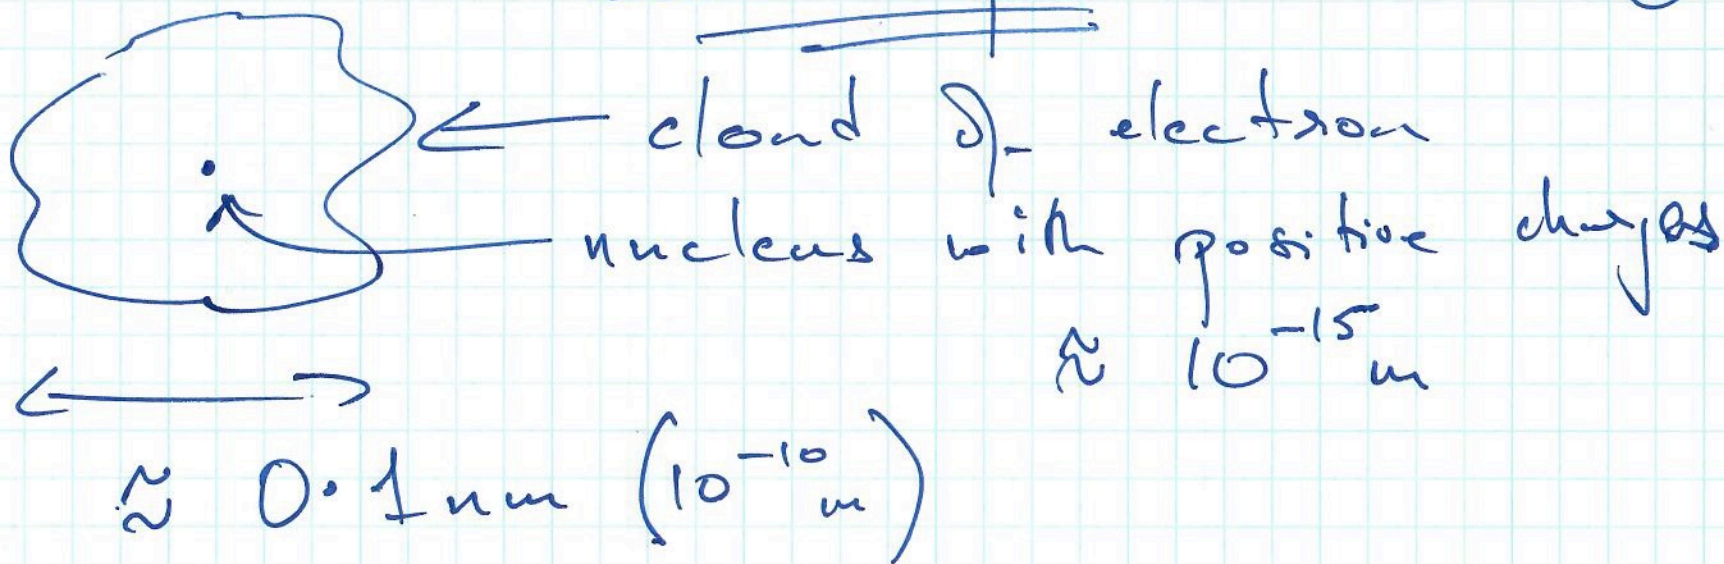 cloud of electron
nucleus with positive charges
≈ 10⁻¹⁵ m
≈ 0.1 nm (10⁻¹⁰ m)